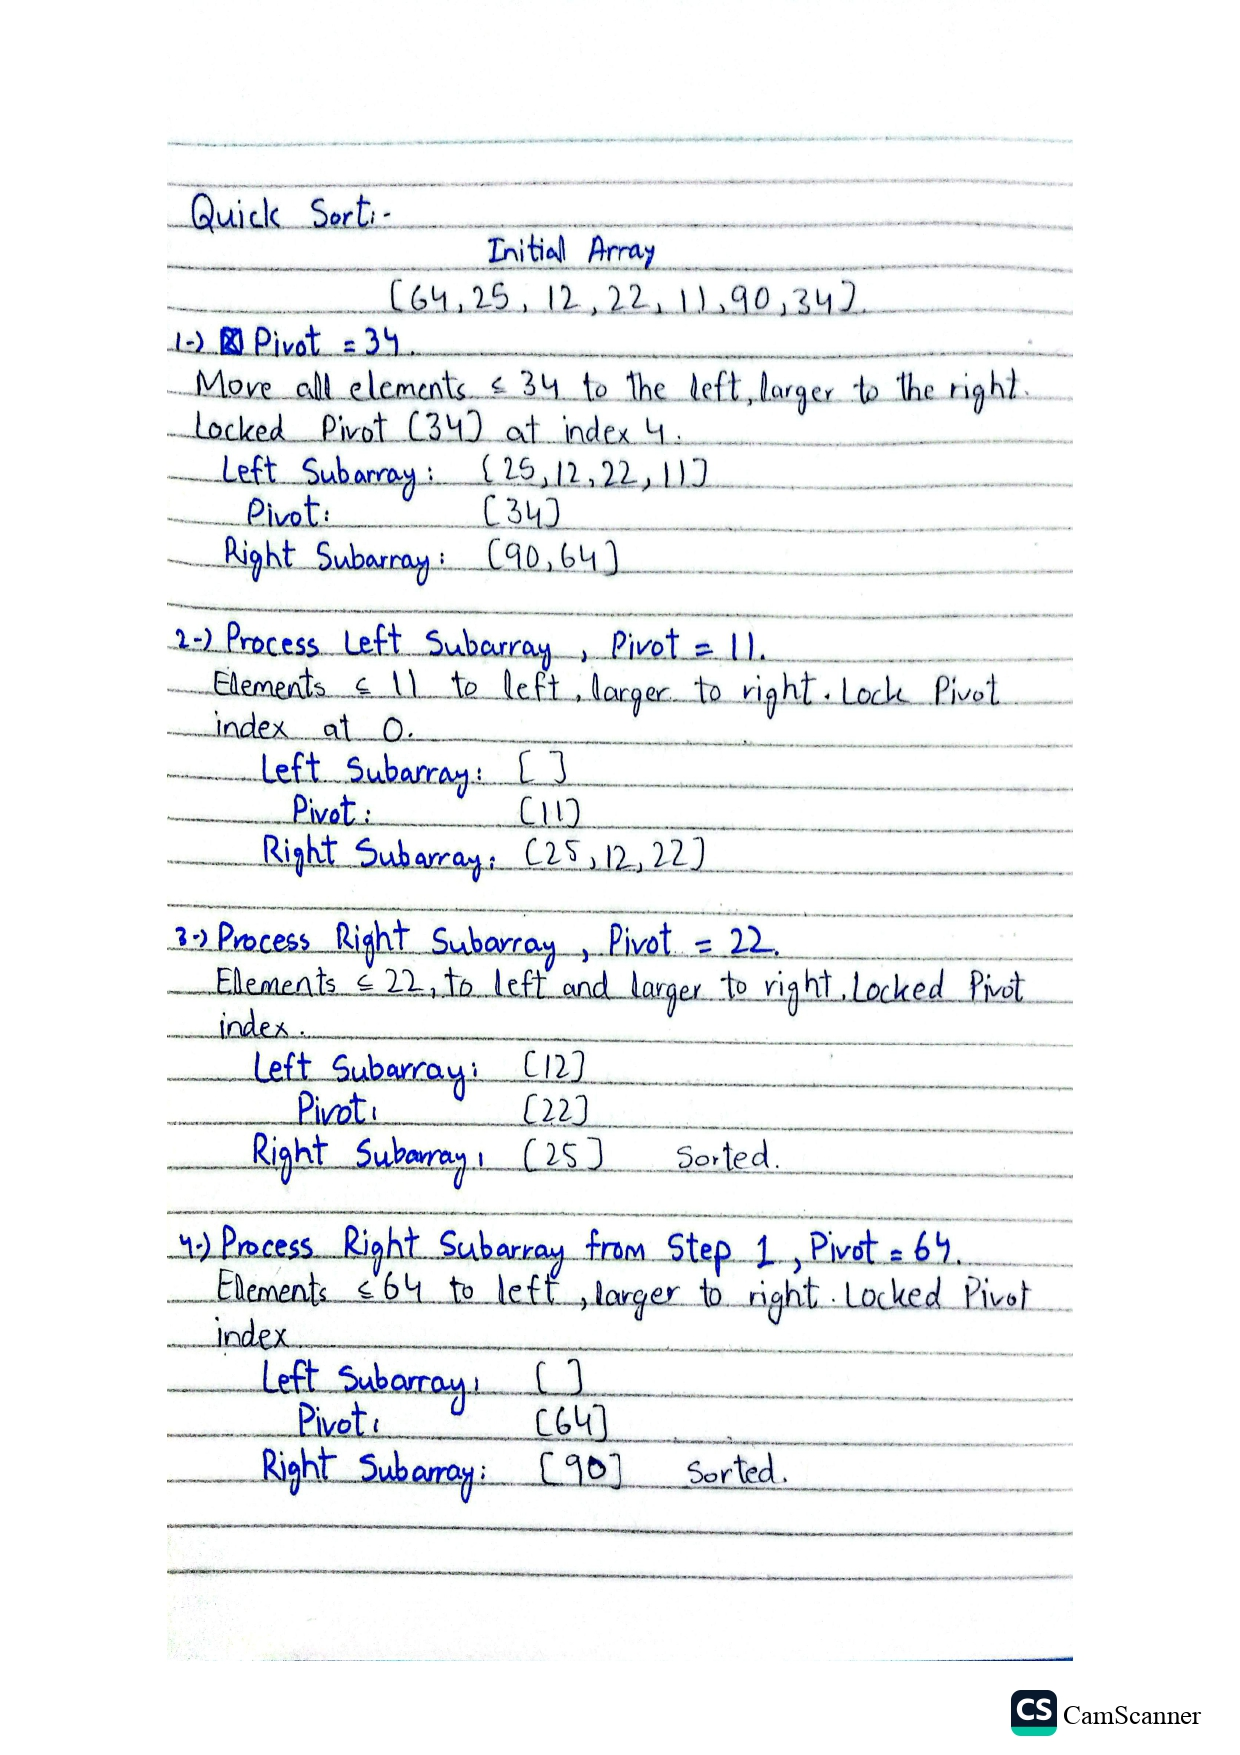 Quick Sort:-
Initial Array
[64, 25, 12, 22, 11, 90, 34].
1-) Pivot = 34.
Move all elements ≤ 34 to the left, larger to the right.
Locked Pivot [34] at index 4.
Left Subarray: [25, 12, 22, 11]
Pivot: [34]
Right Subarray: [90, 64]
2-) Process Left Subarray, Pivot = 11.
Elements ≤ 11 to left, larger to right. Lock Pivot
index at 0.
Left Subarray: [ ]
Pivot: [11]
Right Subarray: [25, 12, 22]
3-) Process Right Subarray, Pivot = 22.
Elements ≤ 22, to left and larger to right. Locked Pivot
index.
Left Subarray: [12]
Pivot: [22]
Right Subarray: [25] Sorted.
4-) Process Right Subarray from Step 1, Pivot = 64.
Elements ≤ 64 to left, larger to right. Locked Pivot
index
Left Subarray: [ ]
Pivot: [64]
Right Subarray: [90] Sorted.
CS CamScanner